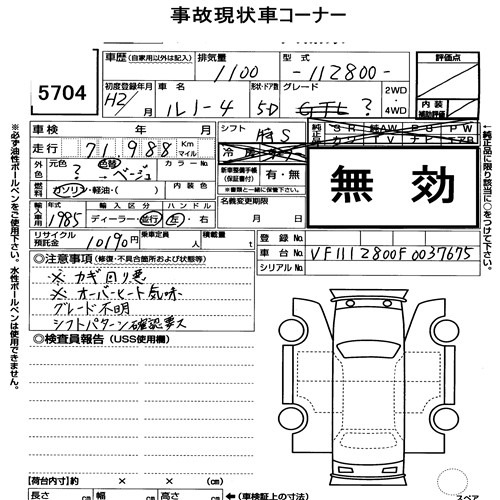 事故現状車コーナー
5704
車歴 (自家用以外は記入)
排気量
型式
評価点
1100
-112800-
初度登録年月
車名
形状・ドア数
グレード
2WD
4WD
H2/
ルノー4
5D
GTL ?
内装
補助評価
車検 年 月
シフト
FS
走行 71,988 Km マイル
外色 元色 色替 カラーNo.
? → ベージュ
新車整備手帳(保証書付) 有・無
※書類と一緒に後日送付。
無効
燃料 ガソリン・軽油・( ) 内装色
輸入車用 年式 輸入区分 ハンドル
1985 ディーラー・並行 左・右
名義変更期限
月 日
リサイクル預託金 10190円 乗車定員 人 積載量 t
登録No.
車台No. VF1112800F0037675
シリアルNo.
◎注意事項 (修復・不具合箇所および状態等)
※ カギ回り悪
※ オーバーヒート気味
グレード不明
シフトパターン確認要ス
◎検査員報告 (USS使用欄)
【荷台内寸】約 × × cm
長さ cm 幅 cm 高さ cm ← (車検証上の寸法)
スペア
※必ず油性ボールペンをご使用下さい。水性ボールペンは使用できません。
←純正品に限り該当に○をつけて下さい。